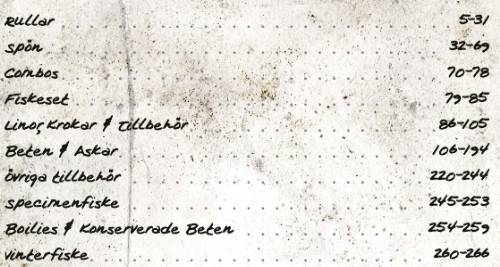 Rullar 5-31
Spön 32-69
Combos 70-78
Fiskeset 79-85
Linor, Krokar & Tillbehör 86-105
Beten & Askar 106-194
Övriga tillbehör 220-244
Specimenfiske 245-253
Boilies & Konserverade Beten 254-259
Vinterfiske 260-266